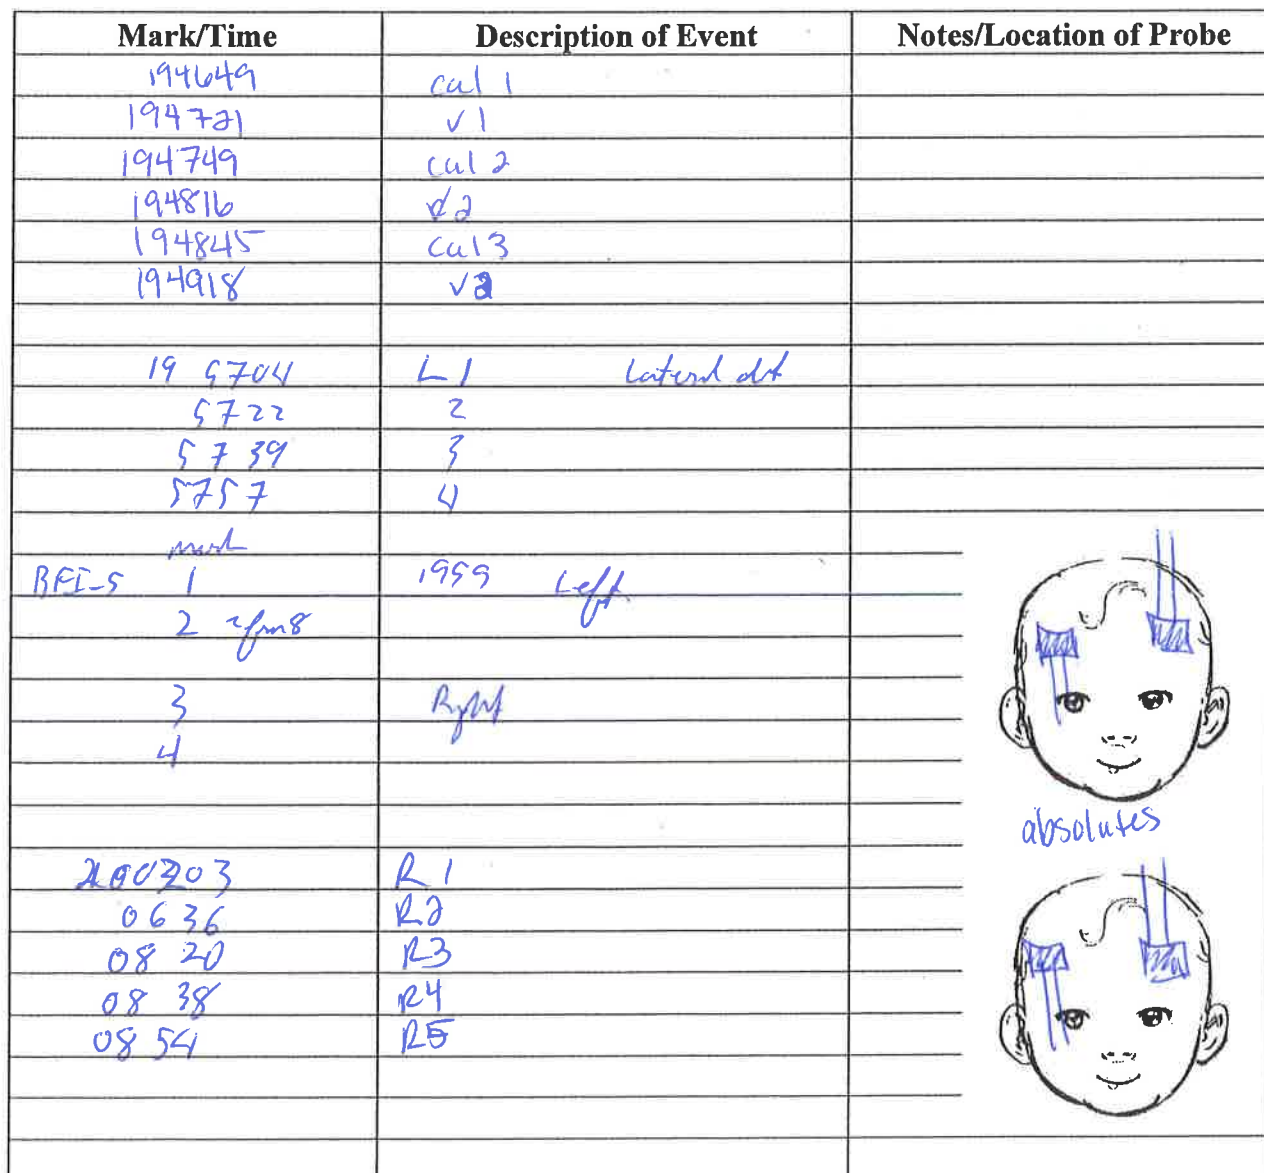 Mark/Time Description of Event Notes/Location of Probe
194649 cal 1
194721 v1
194749 cal 2
194816 v2
194845 cal 3
194918 v3
19 5704 L1 Lateral
5722 2
57 39 3
5757 4
mark
BFI-5 1 1959 Left
2
3 Right
4
absolutes
R1
06 36 R2
08 20 R3
08 38 R4
08 54 R5